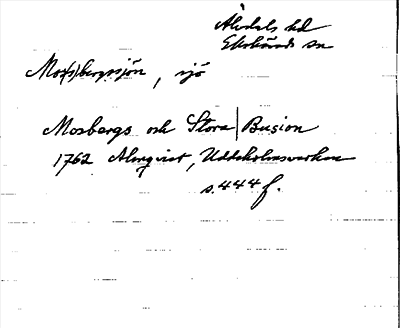 Älvdals hd
Ekshärads sn
Mo(s)bergssjön, sjö
Mosbergs och Stora Busion
1762 Almqvist, Uddeholmsverken
s. 444 f.